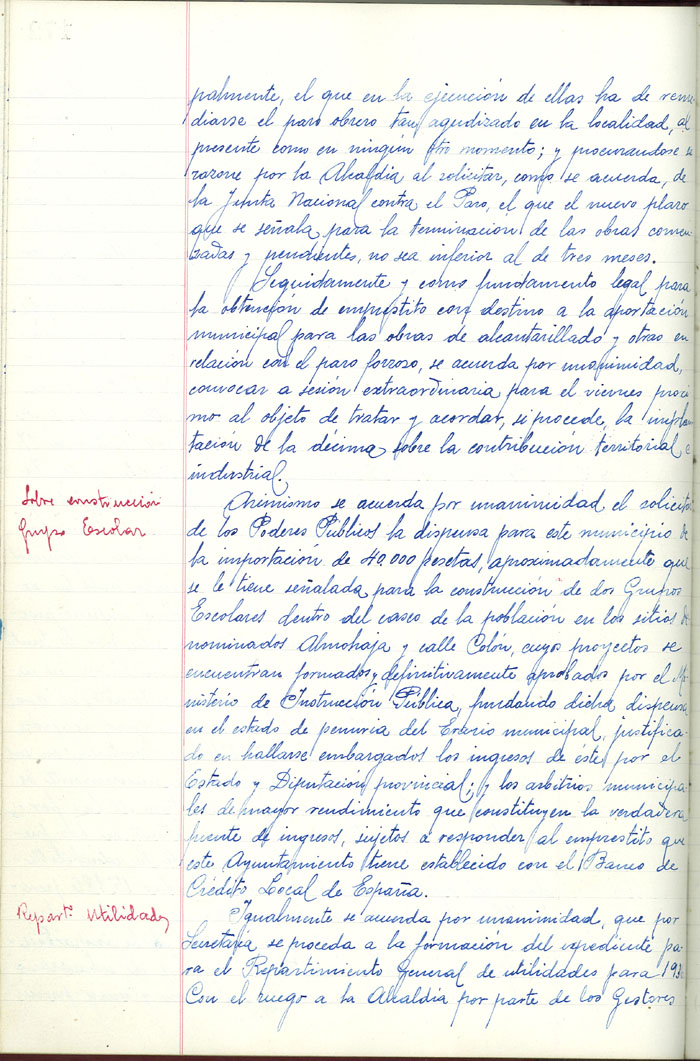 palmente, el que en la ejecución de ellas ha de reme
diarse el paro obrero tan agudizado en la localidad, al
presente como en ningún otro momento; y procurandose se
razone por la Alcaldia al solicitar, como se acuerda, de
la Junta Nacional contra el Paro, el que el nuevo plazo
que se señala para la terminacion de las obras comen
zadas y pendientes, no sea inferior al de tres meses.
Seguidamente y como fundamento legal para
la obtención de emprestito con destino a la aportación
municipal para las obras de alcantarillado y otras en
relación con el paro forzoso, se acuerda por unanimidad,
convocar a sesión extraordinaria para el viernes proxi
mo al objeto de tratar y acordar, si procede, la implan
tación de la décima sobre la contribución territorial e
industrial.
Sobre construcción
Grupo Escolar
Asimismo se acuerda por unanimidad el solicitar
de los Poderes Públicos la dispensa para este municipio de
la importación de 40.000 pesetas, aproximadamente que
se le tiene señalada para la construcción de dos Grupos
Escolares dentro del casco de la población en los sitios de
nominados Almohaja y calle Colón, cuyos proyectos se
encuentran formados y definitivamente aprobados por el Mi
nisterio de Instrucción Pública, fundando dicha dispensa
en el estado de penuria del Erario municipal, justifica
do en hallarse embargados los ingresos de éste por el
Estado y Diputación provincial; y los arbitrios municipa
les de mayor rendimiento que constituyen la verdadera
fuente de ingresos, sujetos a responder al emprestito que
este Ayuntamiento tiene establecido con el Banco de
Crédito Local de España.
Repart.º Utilidades
Igualmente se acuerda por unanimidad, que por
Secretaria se proceda a la formación del expediente pa
ra el Repartimiento General de utilidades para
Con el ruego a la Alcaldia por parte de los Gestores